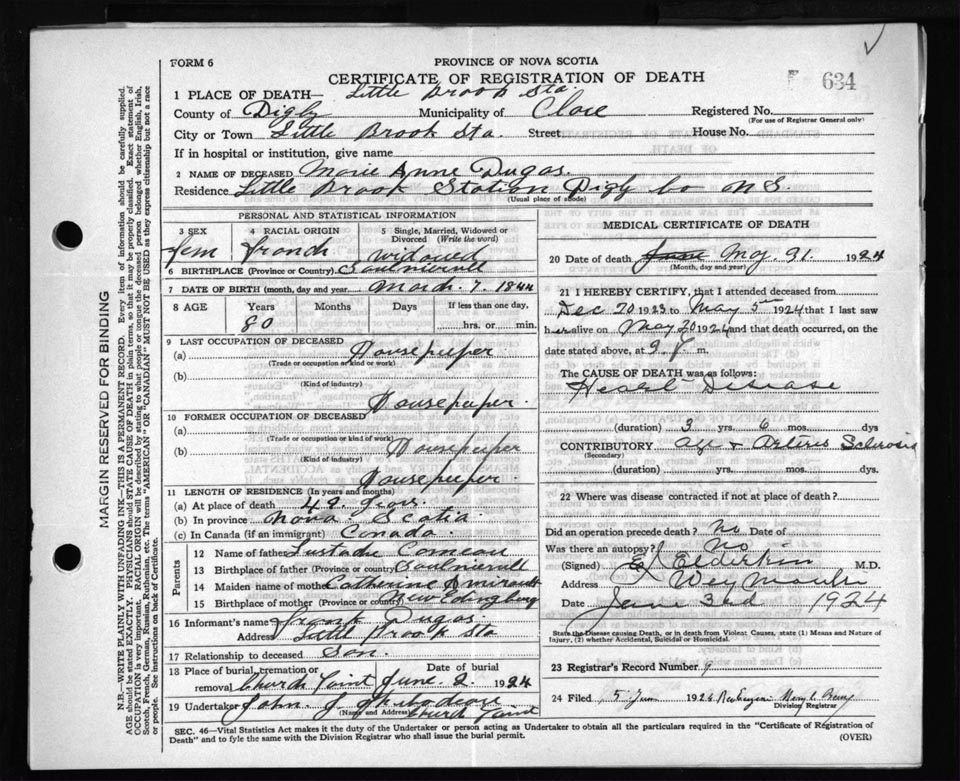 FORM 6
PROVINCE OF NOVA SCOTIA
CERTIFICATE OF REGISTRATION OF DEATH
634
1 PLACE OF DEATH— Little Brook Sta.
County of Digby Municipality of Clare Registered No.
(For use of Registrar General only)
City or Town Little Brook Sta. Street House No.
If in hospital or institution, give name
2 NAME OF DECEASED Marie Anne Dugas.
Residence Little Brook Station Digby Co N S.
(Usual place of abode)
PERSONAL AND STATISTICAL INFORMATION
3 SEX 4 RACIAL ORIGIN 5 Single, Married, Widowed or Divorced (Write the word)
fem french widowed
6 BIRTHPLACE (Province or Country) Saulnierville
7 DATE OF BIRTH (month, day and year) March. 7. 1844
8 AGE Years Months Days If less than one day,
80 hrs. or min.
9 LAST OCCUPATION OF DECEASED
(a) Housekeeper.
(Trade or occupation or kind or work)
(b)
(Kind of industry)
Housekeeper.
10 FORMER OCCUPATION OF DECEASED
(a)
(Trade or occupation or kind of work)
(b) Housekeeper
(Kind of industry)
Housekeeper.
11 LENGTH OF RESIDENCE (In years and months)
(a) At place of death 49. years.
(b) In province Nova Scotia
(c) In Canada (if an immigrant) Canada.
Parents
12 Name of father Eustache Comeau
13 Birthplace of father (Province or country) Saulnierville
14 Maiden name of mother Catherine Amirault
15 Birthplace of mother (Province or country) New Edingburg
16 Informant's name Frank Dugas
Address Little Brook Sta
17 Relationship to deceased Son.
18 Place of burial, cremation or removal Church Point Date of burial June. 2. 1924
19 Undertaker John. J. Thibodeau
(Name and Address) Church Point
MEDICAL CERTIFICATE OF DEATH
20 Date of death June May. 31. 1924
(Month, day and year)
21 I HEREBY CERTIFY, that I attended deceased from
Dec 20 1923 to May 5th 1924 that I last saw
her alive on May 20 1924 and that death occurred, on the
date stated above, at 9. P m.
The CAUSE OF DEATH was as follows:
Heart Disease
(duration) 3 yrs. 6 mos. dys
CONTRIBUTORY Age & Arterio Sclerosis
(Secondary)
(duration) yrs. mos. dys.
22 Where was disease contracted if not at place of death?
Did an operation precede death? no Date of
Was there an autopsy? no
(Signed) Elderkin M.D.
Address Weymouth
Date June 3rd 1924
State the Disease causing Death, or in death from Violent Causes, state (1) Means and Nature of Injury, (2) whether Accidental, Suicidal or Homicidal.
23 Registrar's Record Number 9
24 Filed 5 June 192
Division Registrar
SEC. 46—Vital Statistics Act makes it the duty of the Undertaker or person acting as Undertaker to obtain all the particulars required in the "Certificate of Registration of
Death" and to fyle the same with the Division Registrar who shall issue the burial permit. (OVER)
MARGIN RESERVED FOR BINDING
N.B.—WRITE PLAINLY WITH UNFADING INK—THIS IS A PERMANENT RECORD. Every item of information should be carefully supplied.
AGE should be stated EXACTLY. PHYSICIANS should STATE CAUSE OF DEATH in plain terms, so that it may be properly classified. Exact statement of
OCCUPATION is very important. RACIAL ORIGIN will be described by stating to what people or tongue the deceased person belonged whether English, Irish,
Scotch, French, German, Russian, Ruthenian, etc. The terms "AMERICAN" OR "CANADIAN" MUST NOT BE USED as they express citizenship but not a race
or people. See instructions on back of Certificate.